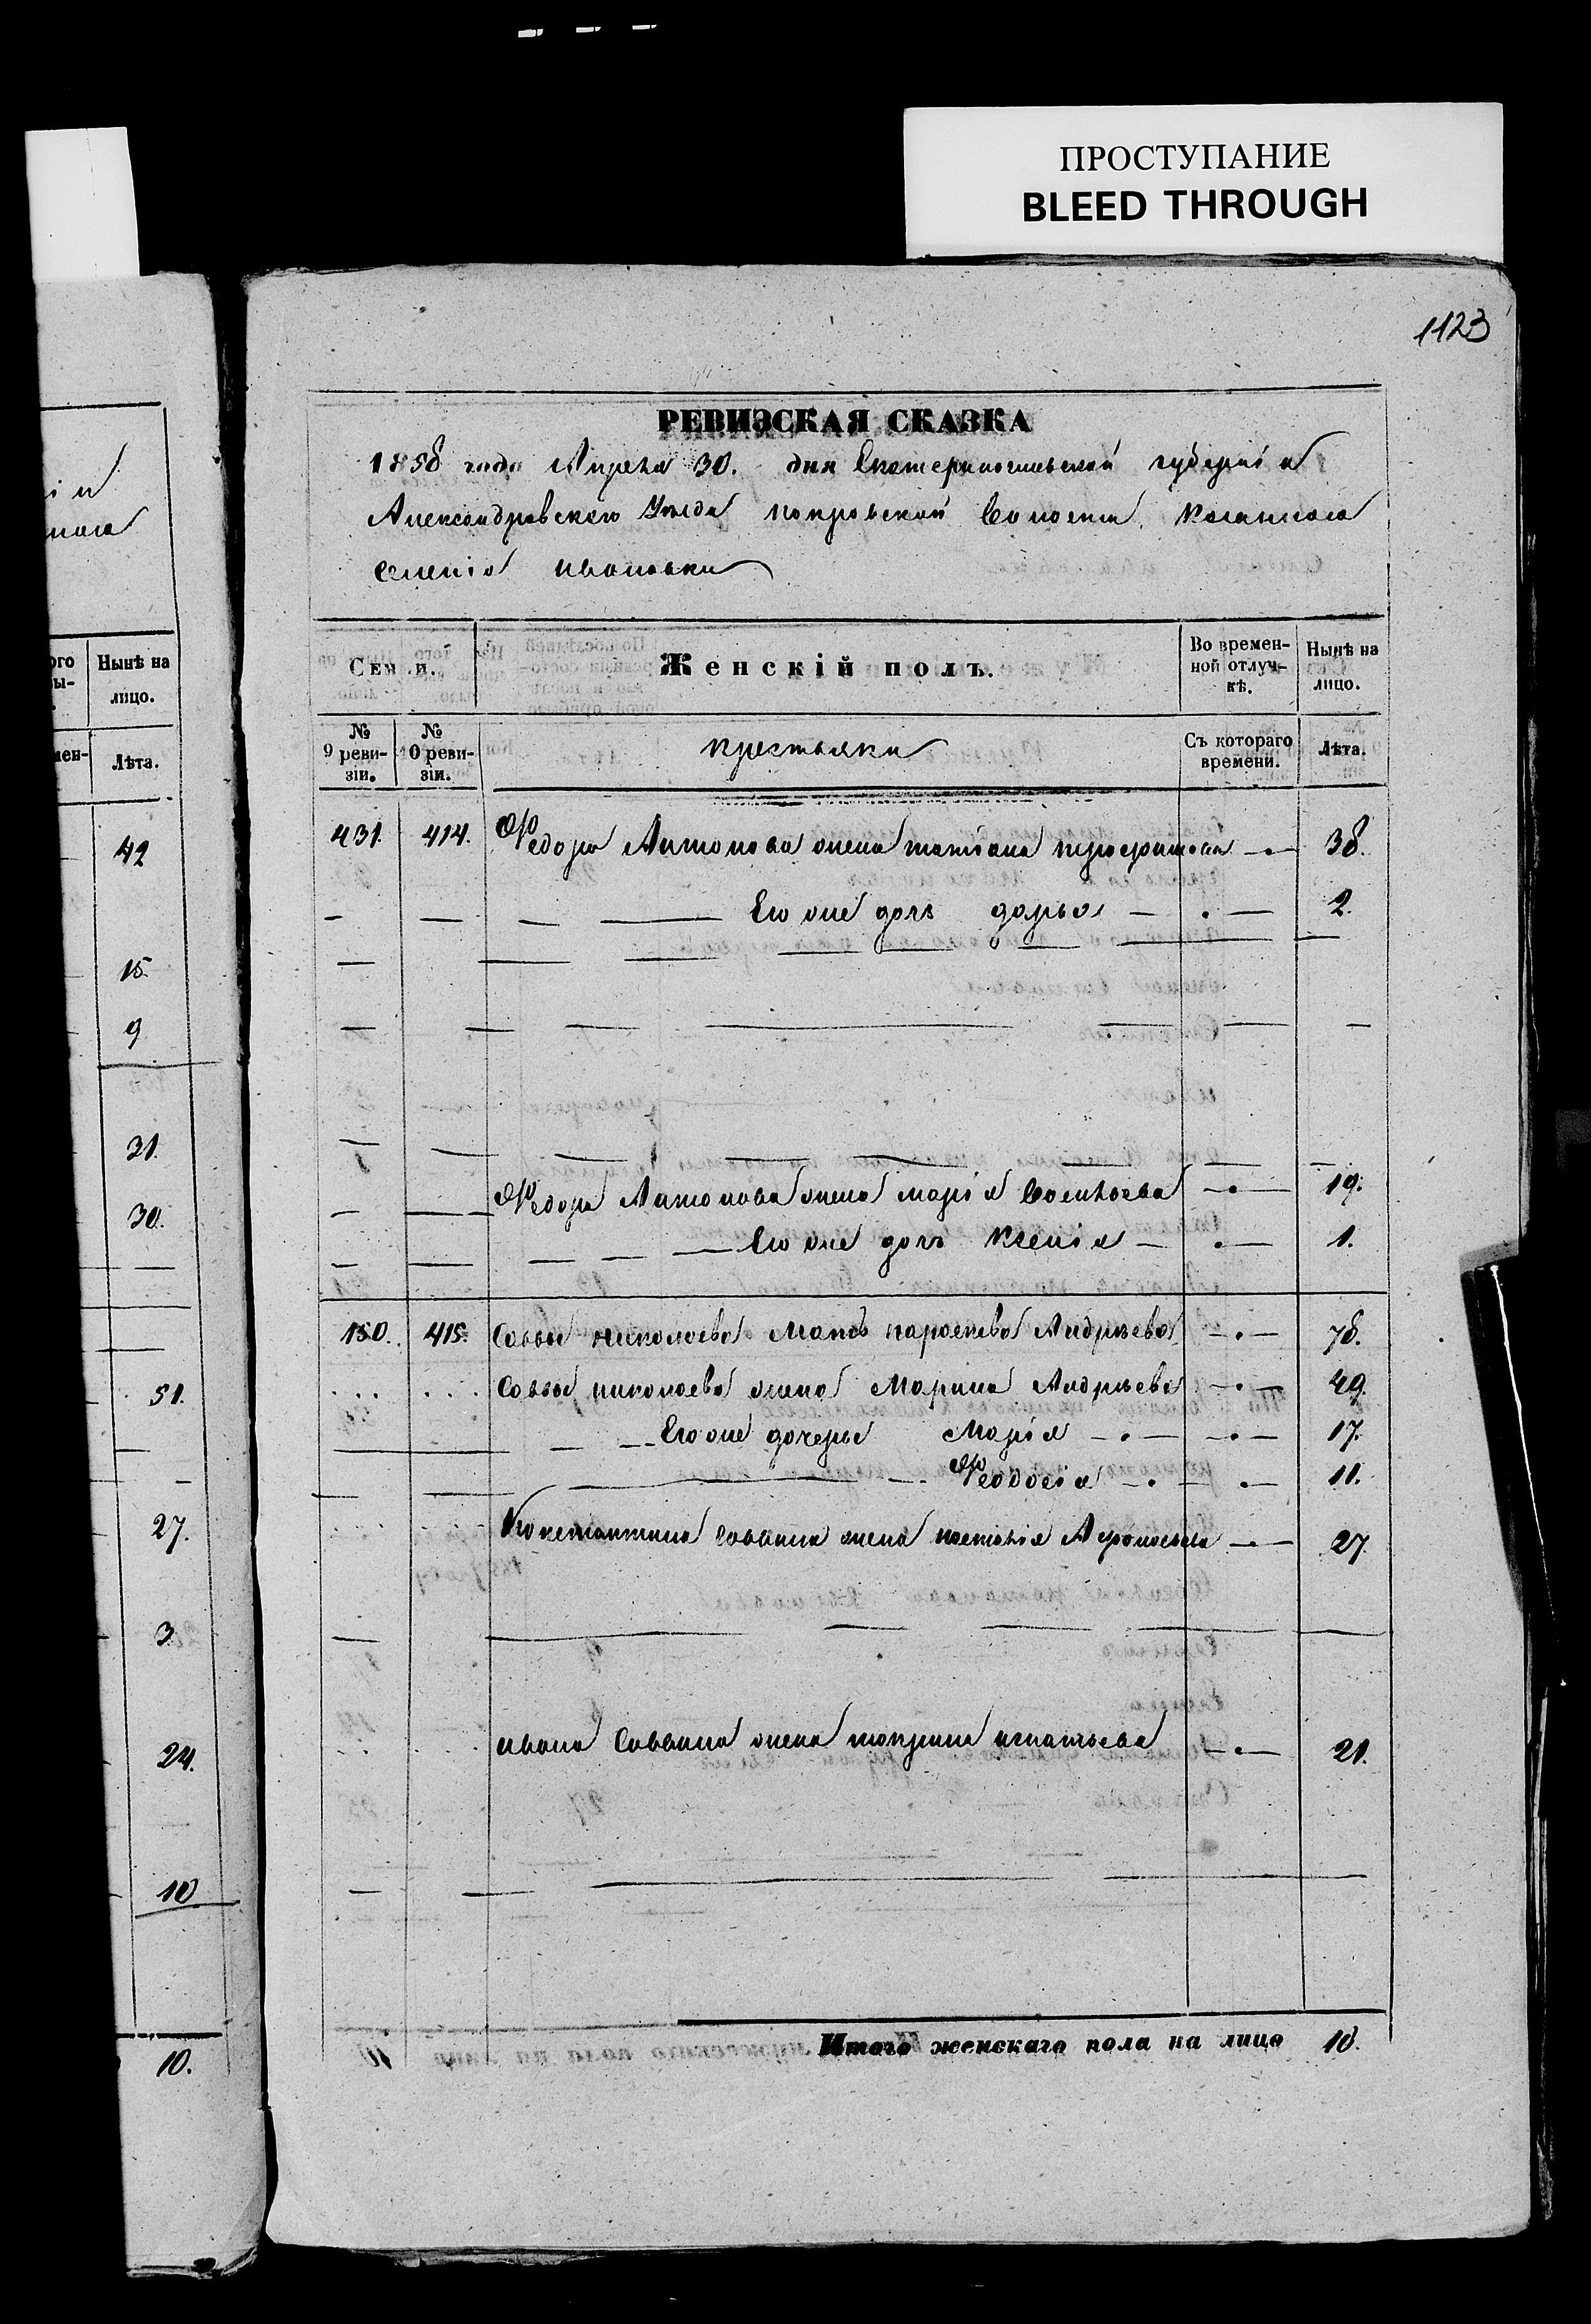 ПРОСТУПАНИЕ
BLEED THROUGH
1123
РЕВИЗСКАЯ СКАЗКА
1858 года Апреля 30. дня Екатеринославской губерніи
Александровскаго Уезда покровской Волости, Казеннаго
селенія ивановки
Семьи.
Женскій полъ.
Во времен-
ной отлуч-
кѣ.
Нынѣ на
лицо.
№
9 реви-
зіи.
№
10 реви-
зіи.
крестьянки
Съ котораго
времени.
Лѣта.
431. 414. Федора Антонова жена татіана 38.
Его же дочь дарья 2.
Федора Антонова жена марія Васильева 19.
Его же дочь Ксенія 1.
150. 415. Саввы николаева Мать параскева Андреева 78.
Саввы николаева жена Марина Андреева 49.
Его же дочери Марія 17.
Феодосія 11.
Константина Саввина жена наталія 27.
ивана Саввина жена игнатьева 21.
Итого женскаго пола на лицо 10.
Нынѣ на
лицо.
Лѣта.
42
15
9
31.
30.
51.
27.
3.
24.
10
10.